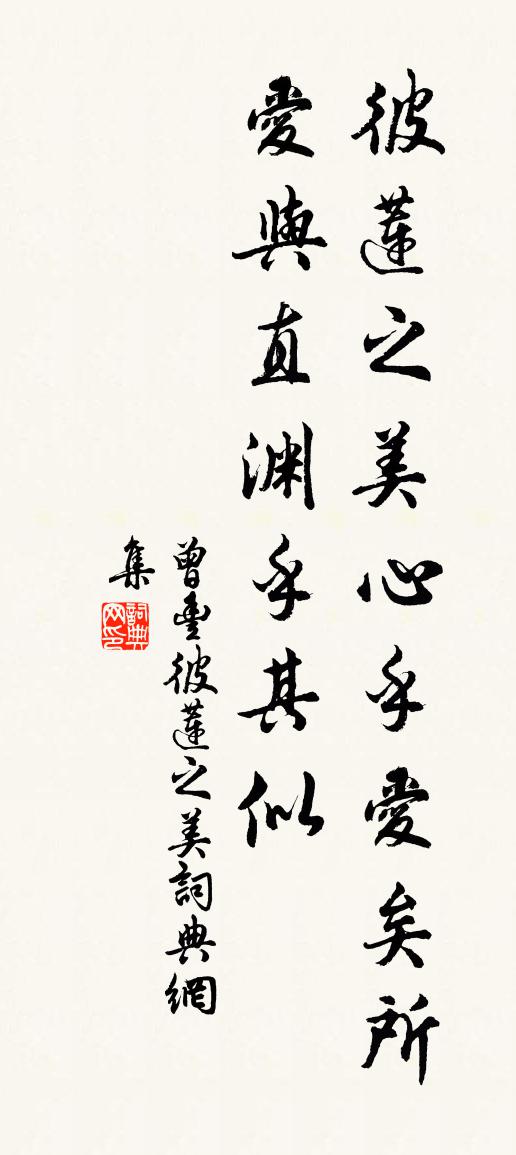 彼蓮之美心乎愛矣所
愛與直淵乎其似
曾豊彼蓮之美詞典網
集
詞典
网印